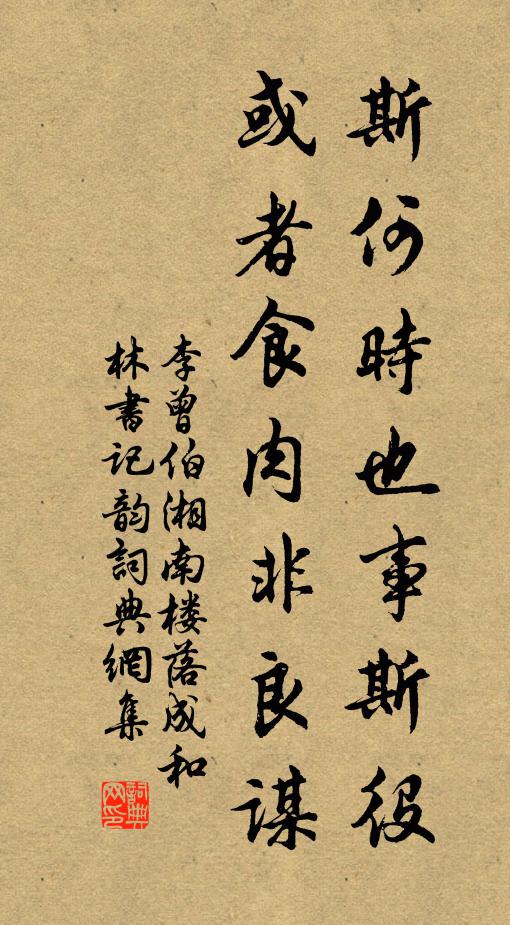 斯何時也事斯役
或者食肉非良謀
李曾伯湘南楼落成和
林書记韵詞典網集
詞典网印